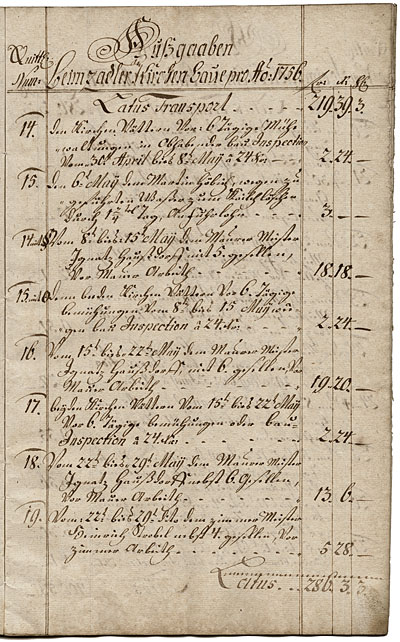 Ausgaaben
Quitt:
Num: beim zadler Kirchen Baue pro Aō: 1756. fl. Xr. ₰
Latus Transport 219. 39. 3.
14. den Kirchen Vättern Vor 6 Tägige Mühe
waltungen in Abseyn der bau Inspection
Vom 30t April bis 8t May à 24 Xr — 2. 24. —
15. den 6t May dem Martin wegen zu
geführten Wasser zum Kalchlöschen
durch 1½ tag, Fuhrlohn 3. — —
Vom 8t bis 15t May dem Maurer Meister
Ignatz Haußdorff mit 5. gesellen,
Vor Maurer Arbeith 18. 18. —
denen beeden Kirchen Vättern Vor 6. Tägige
bemühungen Vom 8t bis 15 May we-
gen bau Inspection à 24 Xr 2. 24. —
16. Vom 15t bis 22t May dem Maurer Meister
Ignatz Haußdorff mit 6. gesellen Vor
Maurer Arbeith 19. 20. —
17. beeden Kirchen Vättern Vom 15t bis 22t May
Vor 6. Tägige bemühungen oder bau
Inspection à 24 Xr 2. 24. —
18. Vom 22t bis 29t May dem Maurer Meister
Ignatz Haußdorff nebst 6. Gesellen,
Vor Maurer Arbeith 13. 6. —
19. Vom 22t bis 29t dito dem zimmer Meister
Heinrich Strobel nebst 4. gesellen, Vor
zimmer Arbeith 5. 28. —
Latus 286. 3. 3.